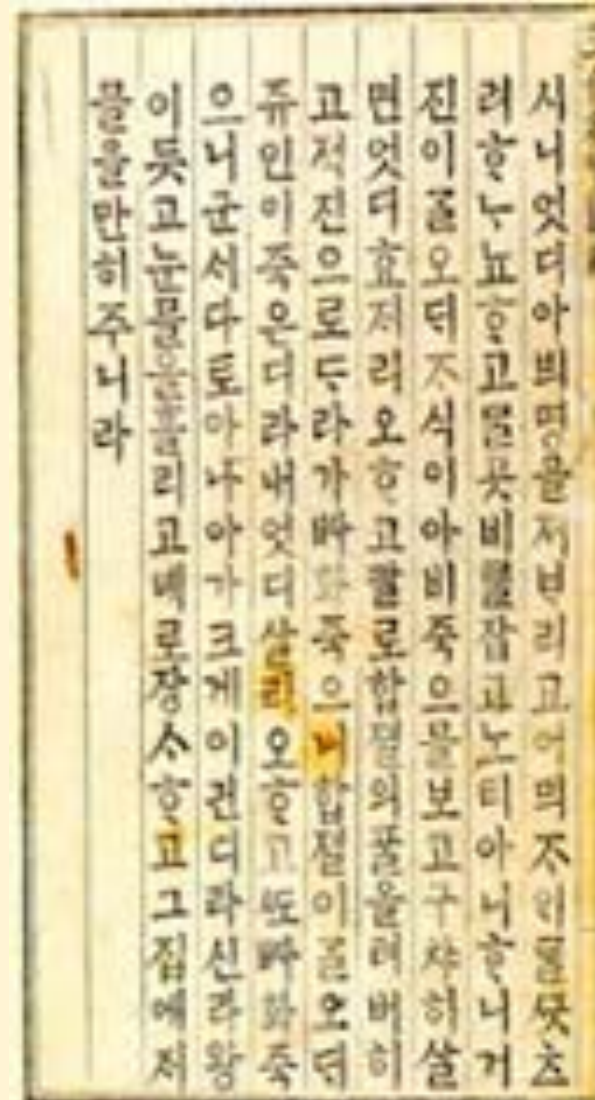 시니엇디아븨명을저ᄇᆞ리고어믜ᄌᆞ이ᄅᆞᆯᄭᅳᆫ츠
려ᄒᆞᄂᆞ뇨ᄒᆞ고ᄆᆞᆯ곳비ᄅᆞᆯ잡고노티아니ᄒᆞ니거
진이ᄀᆞᆯ오ᄃᆡᄌᆞ식이아비죽으믈보고구챠히살
면엇디효저리오ᄒᆞ고팔로합졀의풀을텨버히
고적진으로ᄃᆞ라가ᄡᅡ화죽으니합졀이ᄀᆞᆯ오ᄃᆡ
쥬인이죽은디라내엇디살리오ᄒᆞ고ᄯᅩᄡᅡ화죽
으니군서다토아나아가크게이긘디라신라왕
이듯고눈믈을흘리고녜로장ᄉᆞᄒᆞ고그집에저
믈을만히주니라